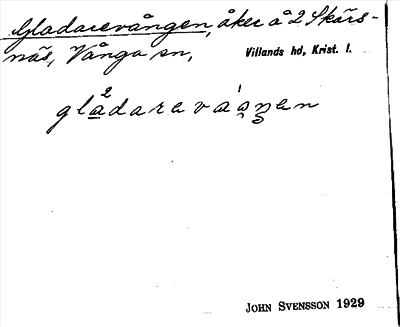 Gladarevången, åker å 2 Skärs-
näs, Vånga sn, Villands hd, Krist. l.
JOHN SVENSSON 1929